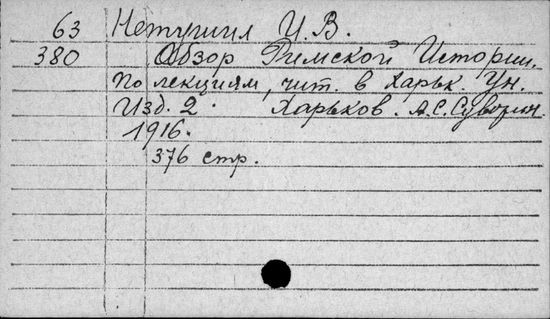 63 Нетушил И. В.
380 Обзор Римской Истории.
По лекциям, чит. в Харьк. Ун.
Изд. 2. Харьков. А.С. Суворин.
1916.
376 стр.